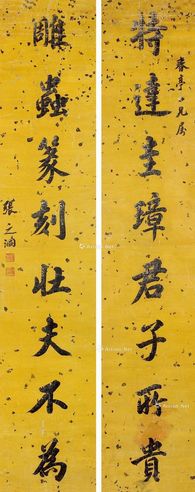 特達圭璋君子所貴
春亭仁兄屬
雕蟲篆刻壯夫不為
張之洞